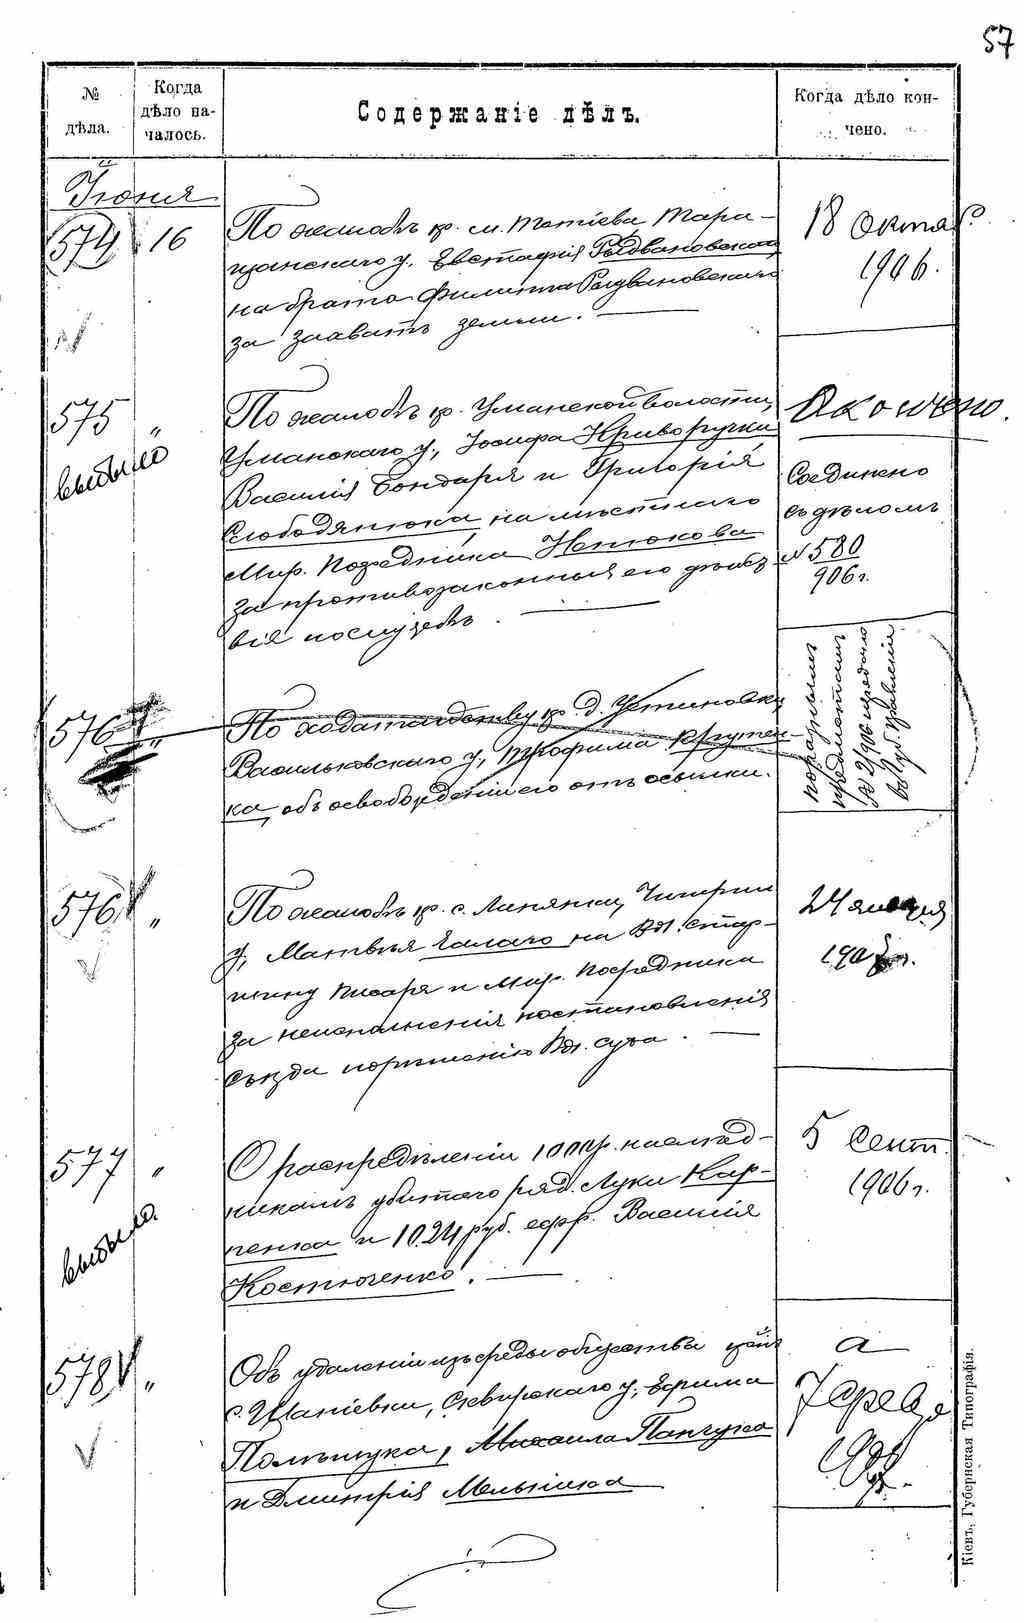 57
№ дѣла.
Когда дѣло на-
чалось.
Содержаніе дѣлъ.
Когда дѣло кон-
чено.
Іюня
574 16 По жалобѣ кр. м. Тетіева, Тара-
щанскаго у. Евстафія Радвановскаго
на брата Филиппа Радвановскаго
за захватъ земли.
18 Октяб.
1906.
575 „ По жалобѣ кр. Уманской волости,
выбыло
Уманскаго у., Іосифа Криворучки
Василія Бондаря и Григорія
Слободянюка на мѣстнаго
Мир. Посредника
за противозаконныя его дѣйст
вія по службѣ.
Окончено.
Соединено
съ дѣломъ
№ 580
906 г.
576 „ По ходатайству кр. д. Устиновки,
Васильковскаго у., Трофима
ка, объ освобожденіи его отъ ссылки.
2/906 передано
въ Губ. Правленіе
576 „ По жалобѣ кр. с. Липянки, Чигирин
у., Матвѣя Галаго на Вол. стар-
шину Писаря и Мир. Посредника
за неисполненія постановленія
съѣзда по рѣшенію Вол. суда.
24 января
190 г.
577 „ О распредѣленіи 1000 р. наслѣд-
выбыло.
никамъ убитаго ряд. Луки Кар-
пенка и 10.24 руб. ефр. Василія
Костюченко.
5 Сент.
1906 г.
578 „ Объ удаленіи изъ среды общества
с. Шапіевки, Сквирскаго у., Ефима
Полѣщука, Михаила Панчука
и Дмитрія Мельника
7 Февр.
Кіевъ, Губернская Типографія.